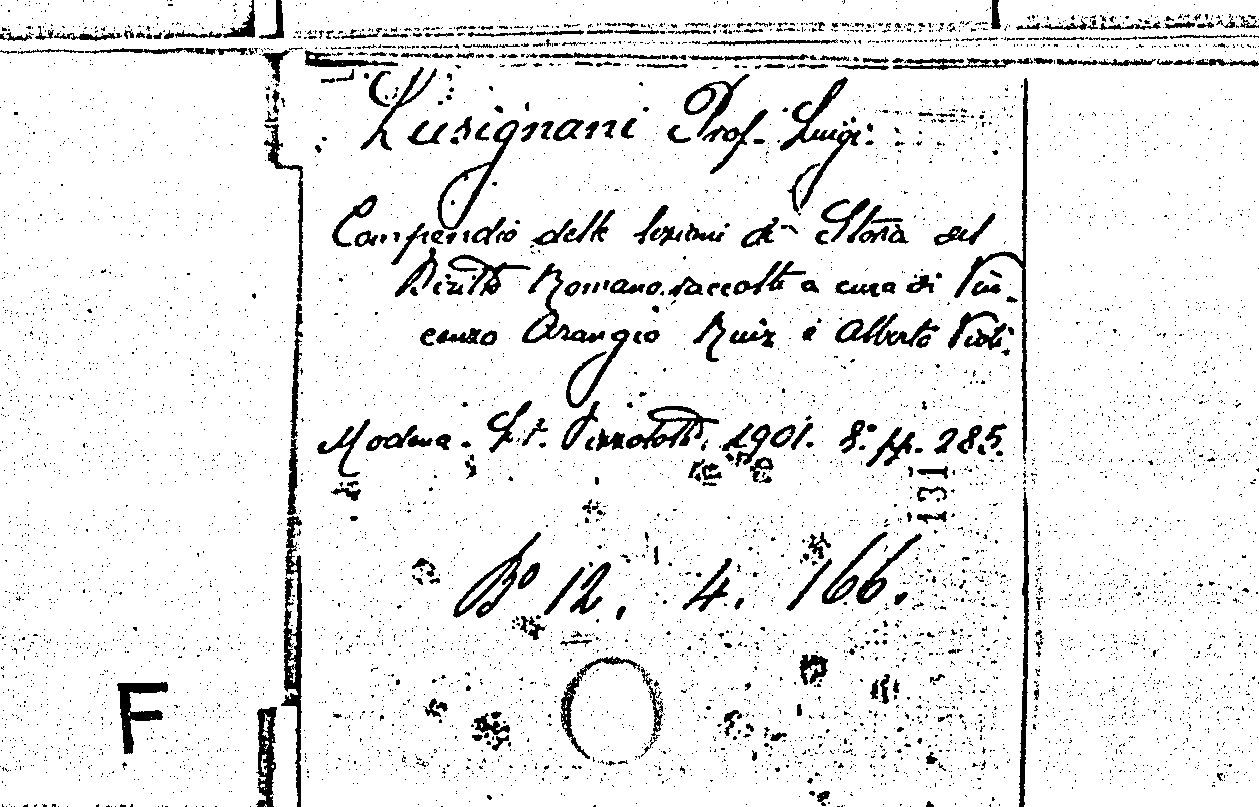 Lusignani Prof. Luigi.
Compendio delle lezioni di Storia del
Diritto Romano raccolte a cura di Vin-
cenzo Arangio Ruiz e Alberto Violi.
Modena. Lit. 1901. 8.° pp. 285.
131
Bº 12. 4. 166.
F